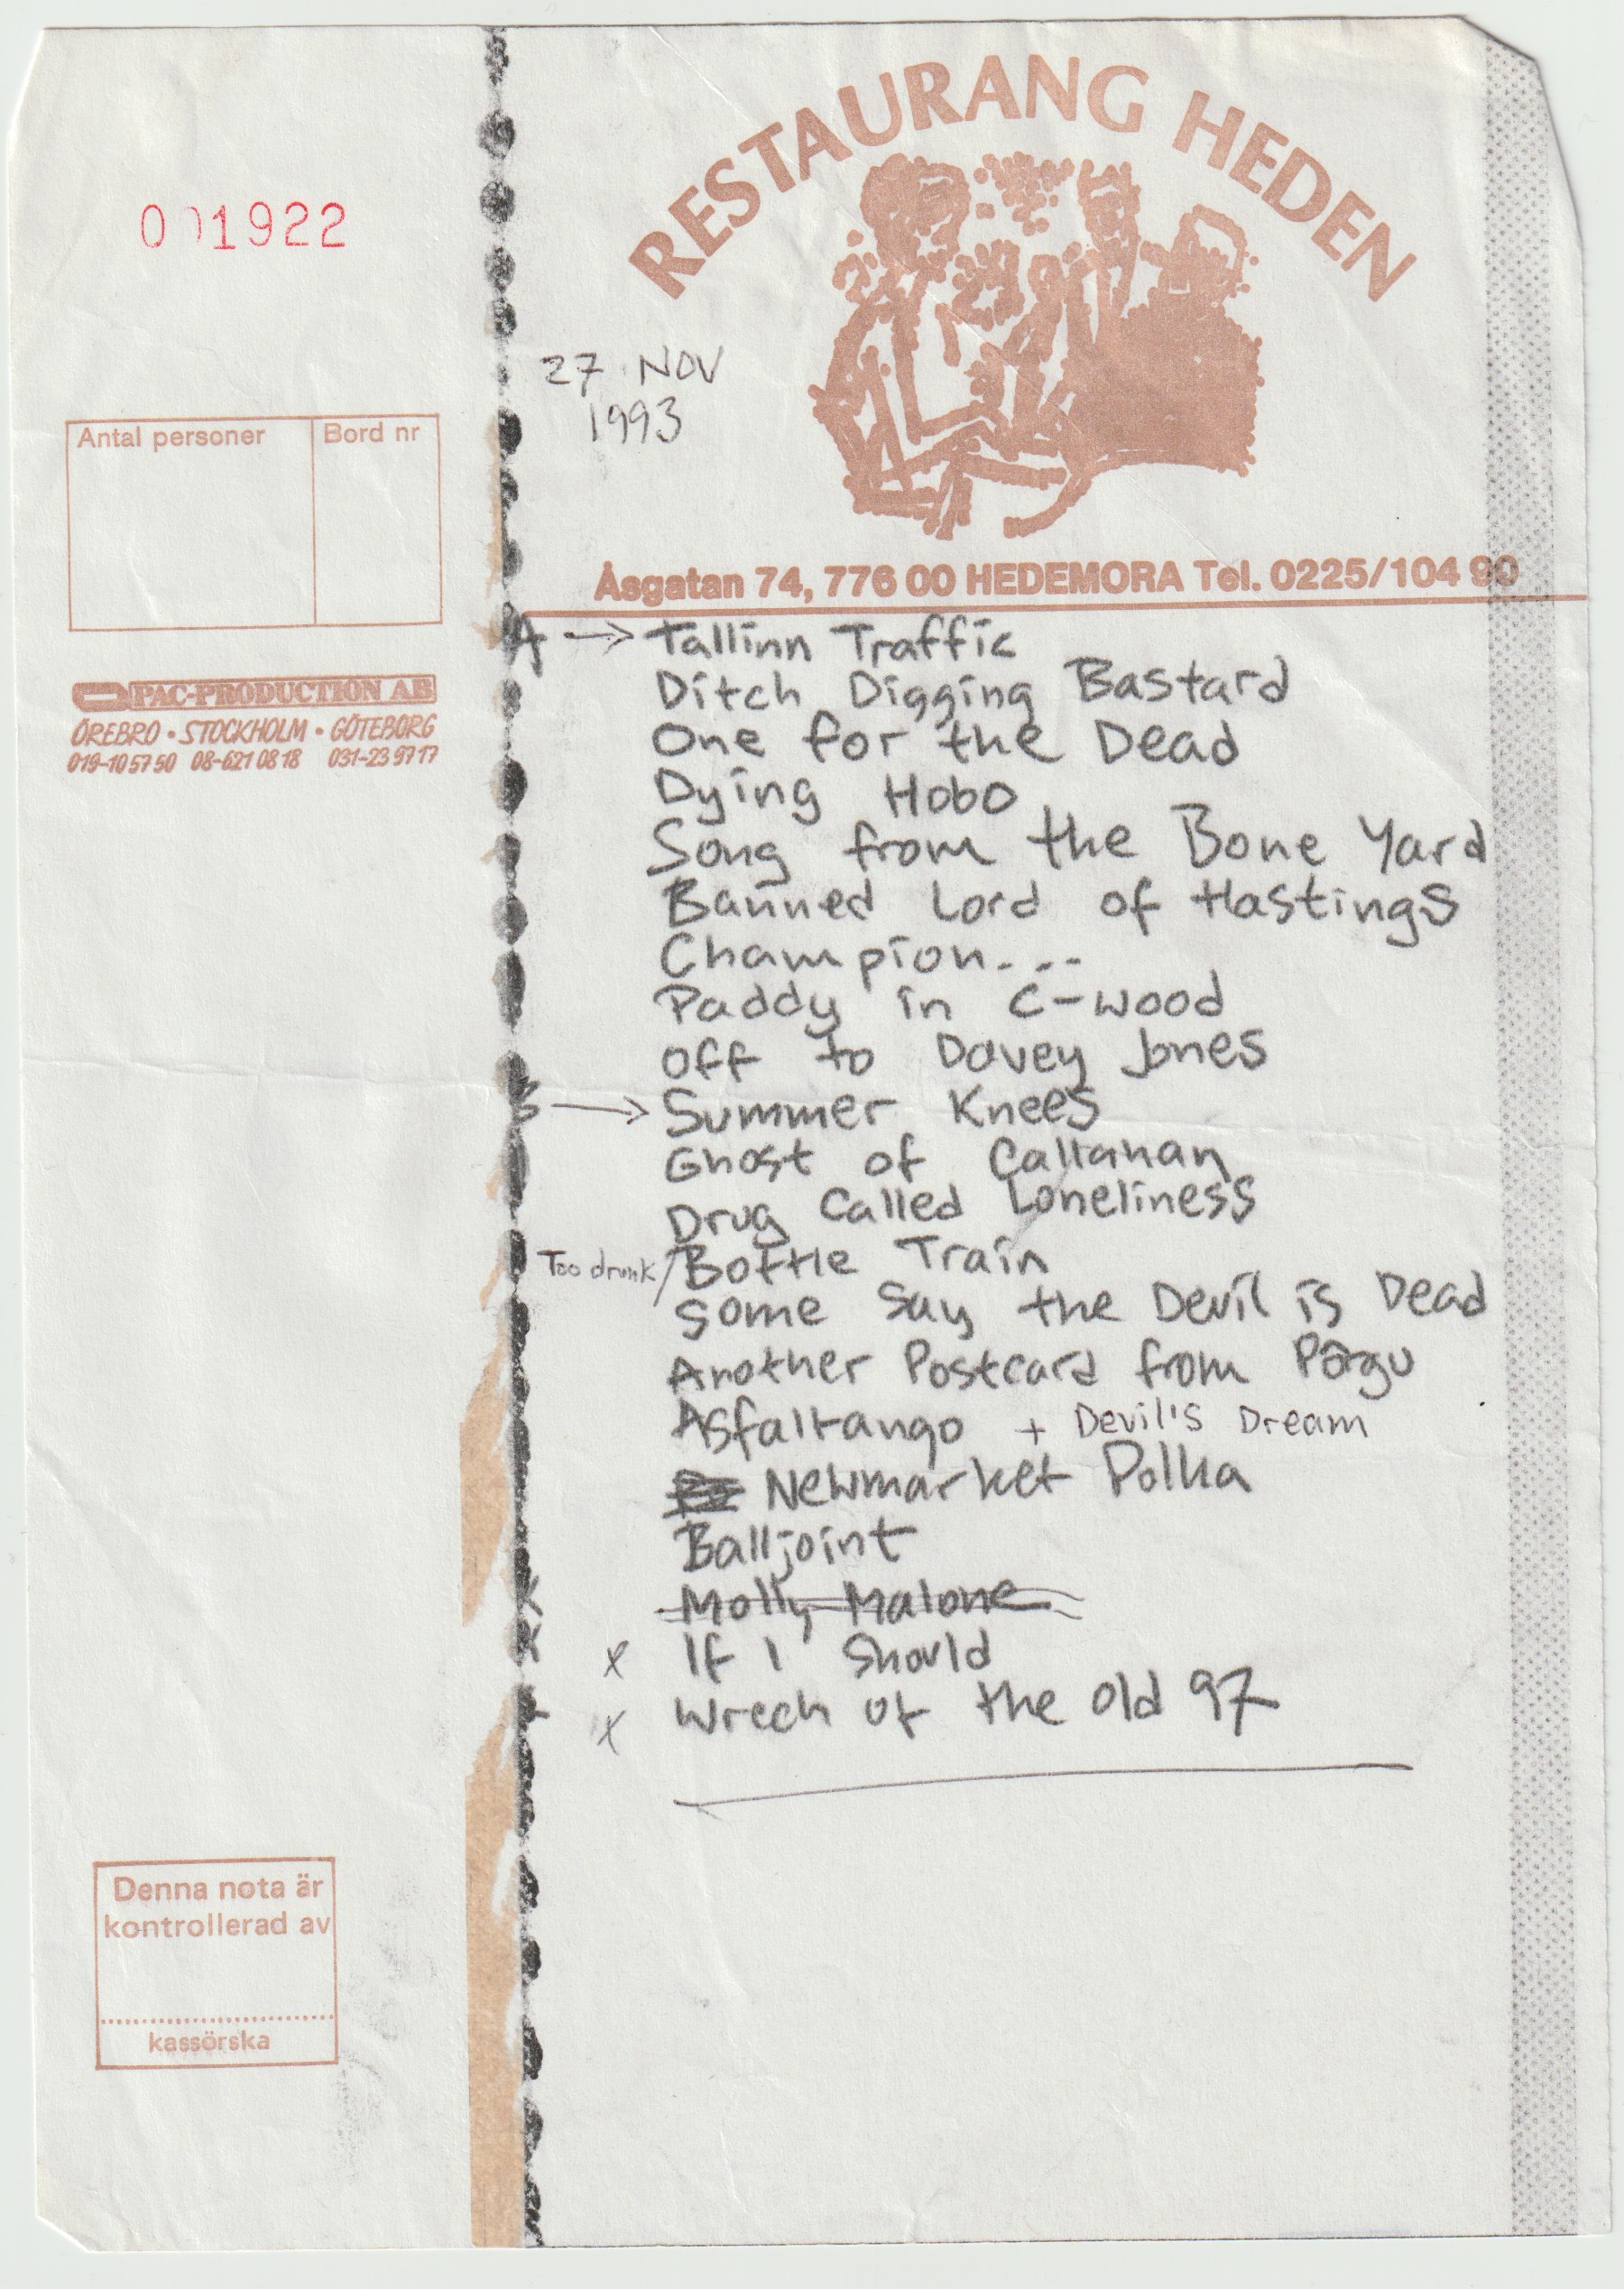 RESTAURANG HEDEN
001922
27 NOV
1993
Antal personer
Bord nr
Åsgatan 74, 776 00 HEDEMORA Tel. 0225/104 90
PAC-PRODUCTION AB
ÖREBRO • STOCKHOLM • GÖTEBORG
019-10 57 50 08-621 08 18 031-23 97 17
A → Tallinn Traffic
Ditch Digging Bastard
One for the Dead
Dying Hobo
Song from the Bone Yard
Banned Lord of Hastings
Champion...
Paddy in C-wood
Off to Davey Jones
→ Summer Knees
Ghost of Callahan
Drug Called Loneliness
Too drunk / Bottle Train
Some Say the Devil is Dead
Another Postcard from
Asfaltango + Devil's Dream
Newmarket Polka
Balljoint
Molly Malone
x If I Should
x Wreck of the Old 97
Denna nota är
kontrollerad av
kassörska